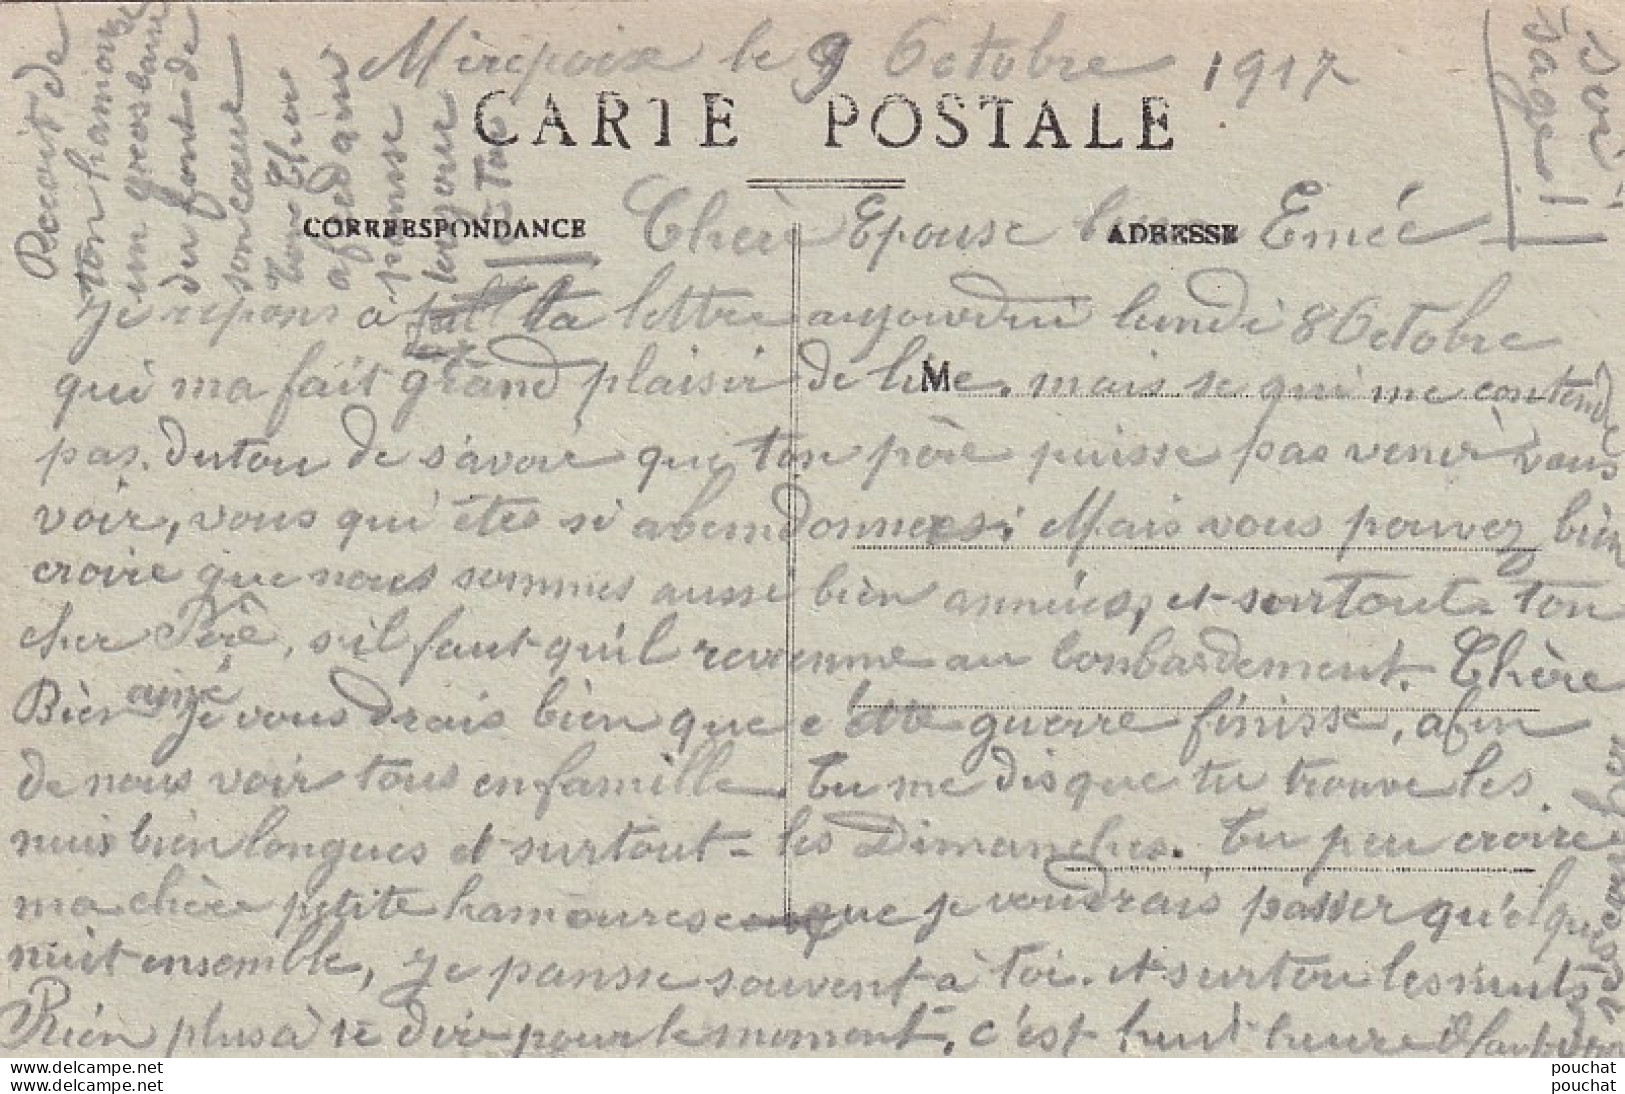 Mirepoix le 9 Octobre 1917
CARTE POSTALE
CORRESPONDANCE
ADRESSE
M
Chère Epouse Emée
Je repons a ta lettre aujourdui lundi 8 Octobre
qui ma fait grand plaisir de lire. mais se qui me contende
pas. dutou de s'avoir que ton père puisse pas venir vous
voir, vous qui êtes si abendonnees. Mais vous pouvez bien
croire que nous sommes aussi bien et surtout ton
cher Père, s'il faut qu'il revienne au bonbardement. Chère
Bièn aimé je vous drais bien que cette guerre finisse, afin
de nous voir tous en famille. Tu me dis que tu trouve les
nuis bien longues et surtout les Dimanches. Tu peu croire
ma chère petite hamourese que je voudrais passer qu'elques
nuit ensemble, je panse souvent à toi. et surtou les nuits
Rién plus à te dire pour le moment, c'est huit heure
Recoit de
ton hamion
un gros baiser
du font de
son cœur
Ton Cher
panse
toujour
a Toi
soi
sage!